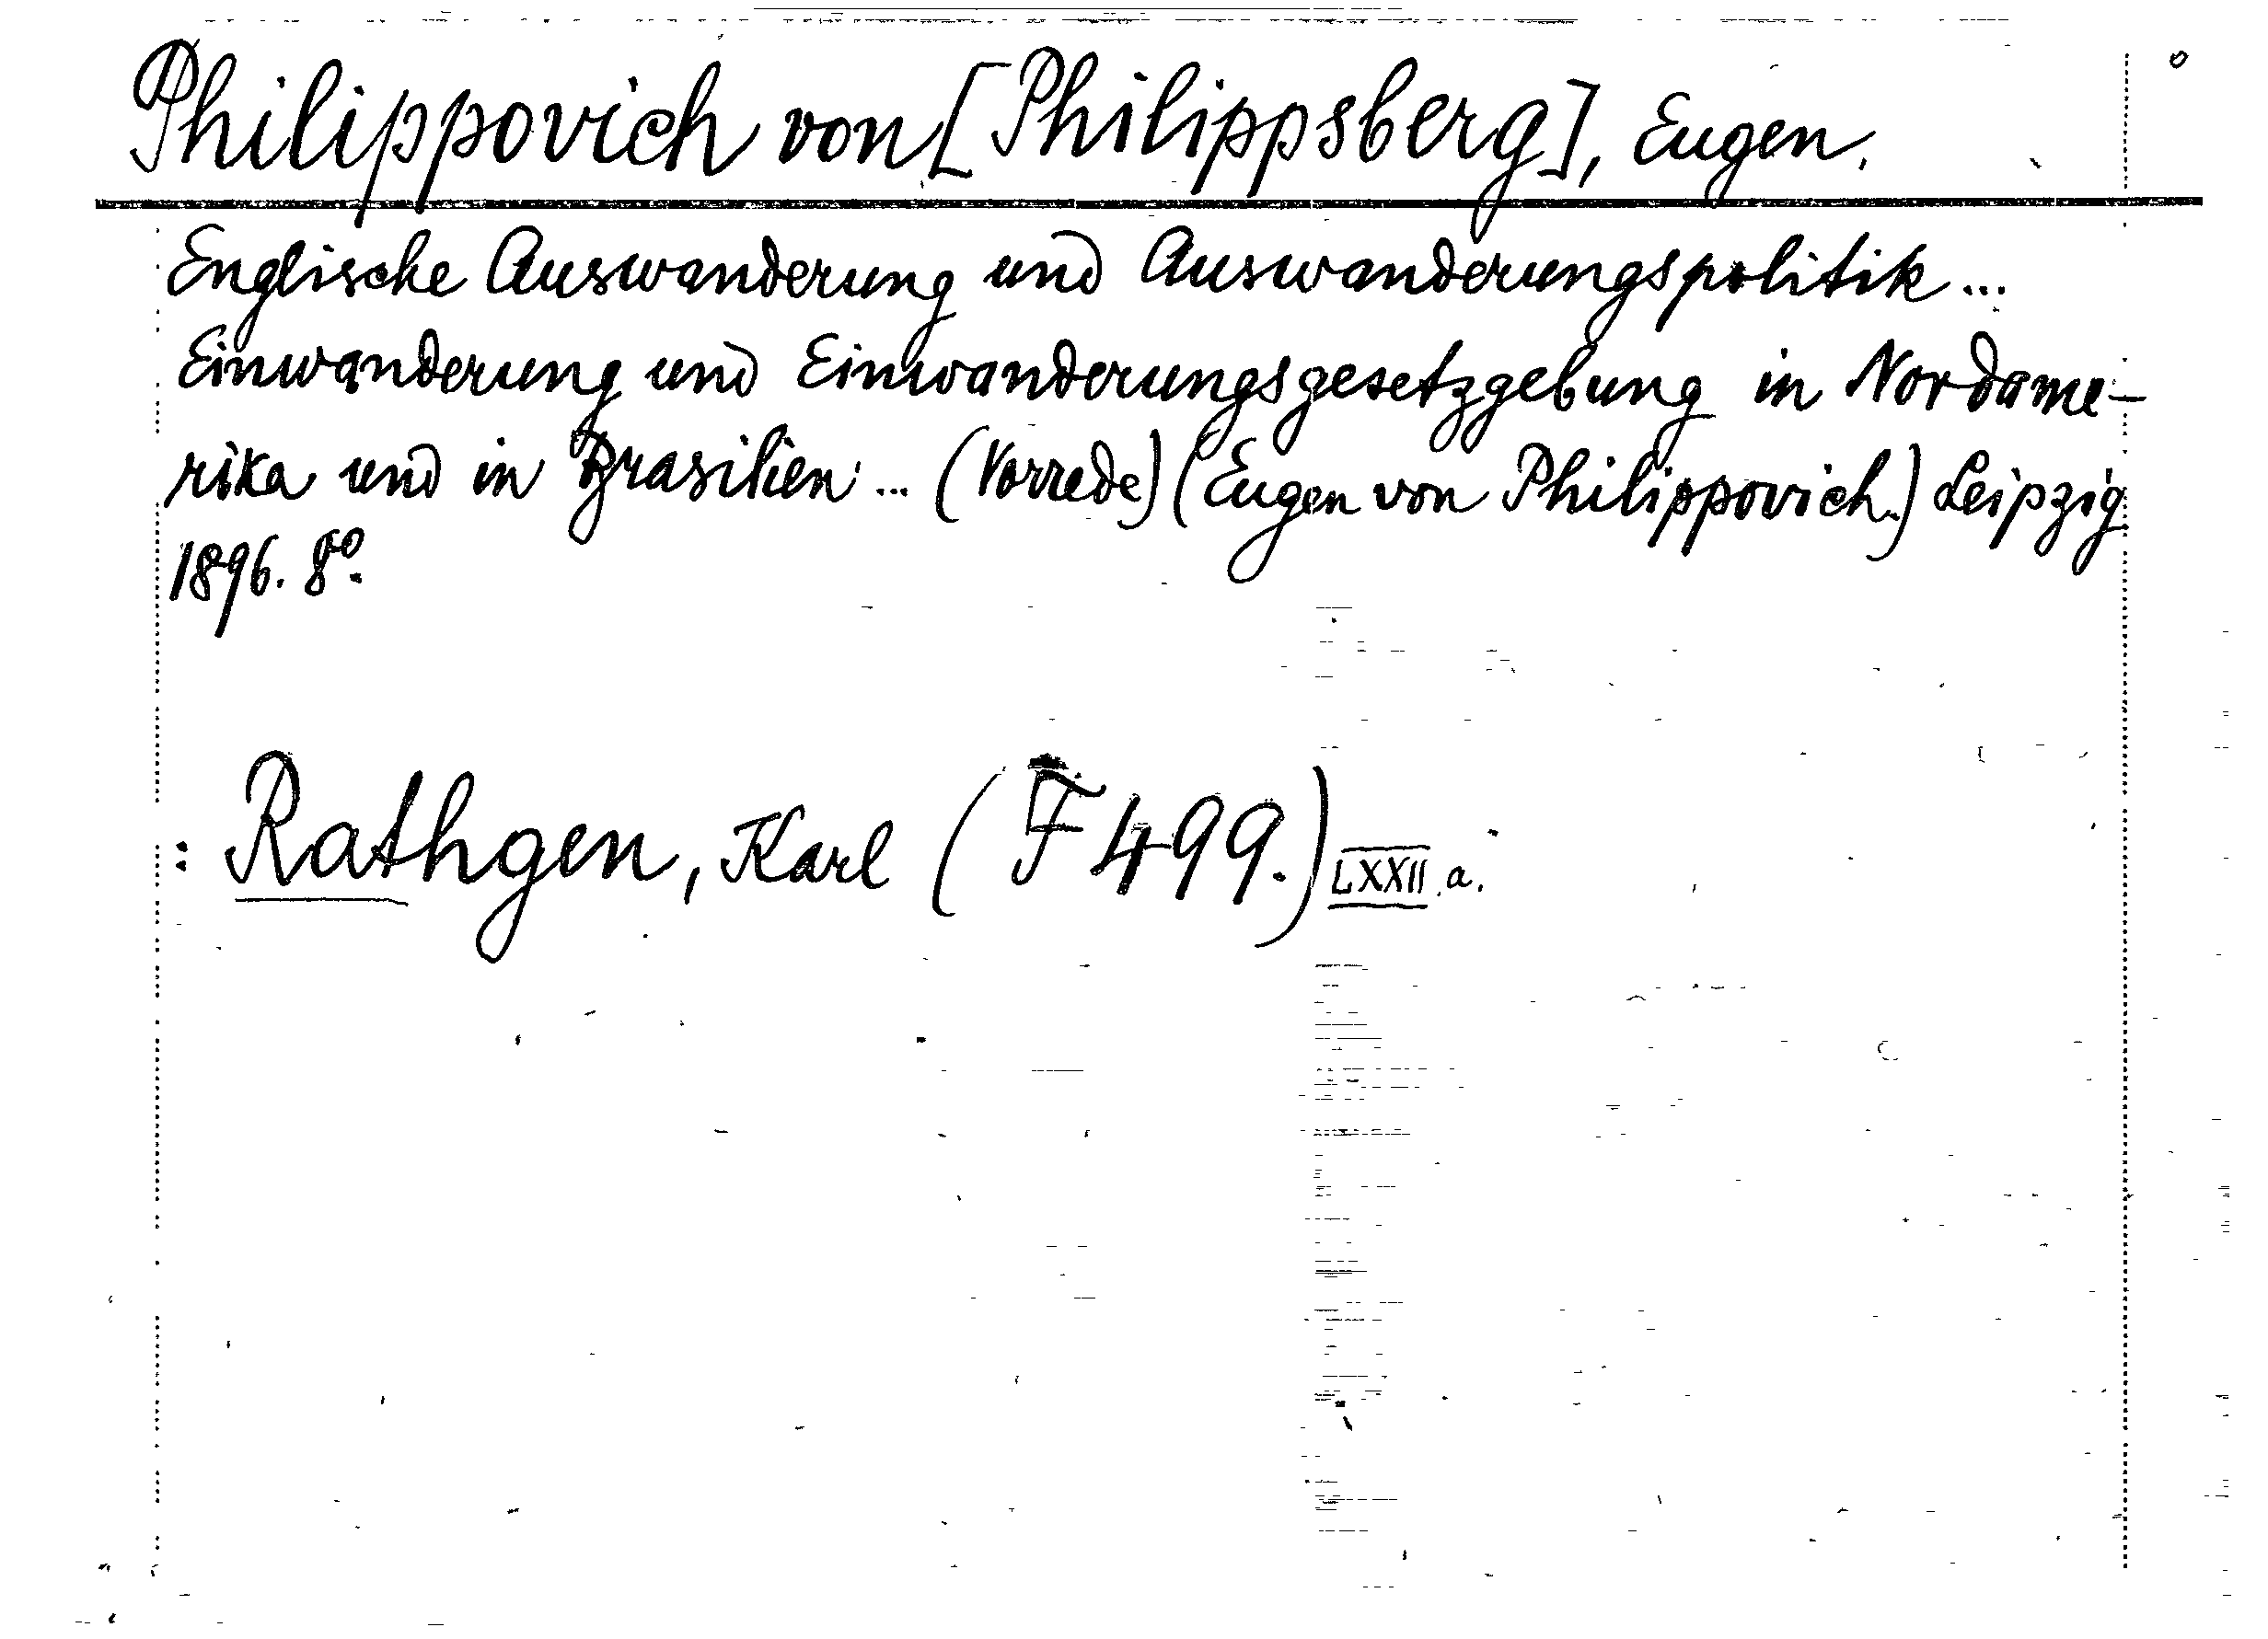 Philippovich von [Philippsberg], Eugen.
Englische Auswanderung und Auswanderungspolitik ...
Einwanderung und Einwanderungsgesetzgebung in Nordame-
rika und in Brasilien ... (Vorrede) (Eugen von Philippovich.) Leipzig
1896. 8º.
: Rathgen, Karl (F 499.) LXXII.a.